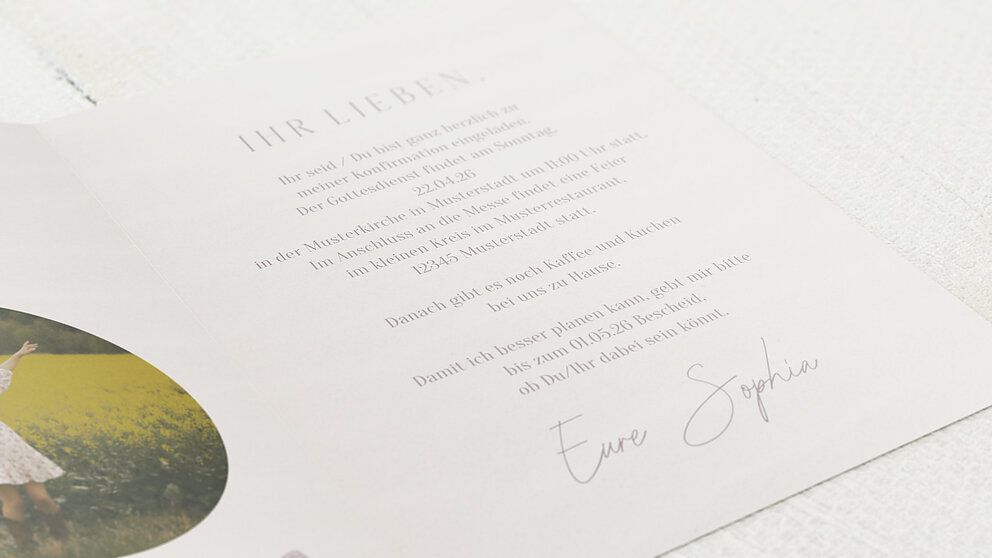 IHR LIEBEN,
Ihr seid / Du bist ganz herzlich zu
meiner Konfirmation eingeladen.
Der Gottesdienst findet am Sonntag
22.04.26
in der Musterkirche in Musterstadt um 11:00 Uhr statt.
Im Anschluss an die Messe findet eine Feier
im kleinen Kreis im Musterrestaurant,
12345 Musterstadt statt.
Danach gibt es noch Kaffee und Kuchen
bei uns zu Hause.
Damit ich besser planen kann, gebt mir bitte
bis zum 01.05.26 Bescheid,
ob Du/Ihr dabei sein könnt.
Eure Sophia